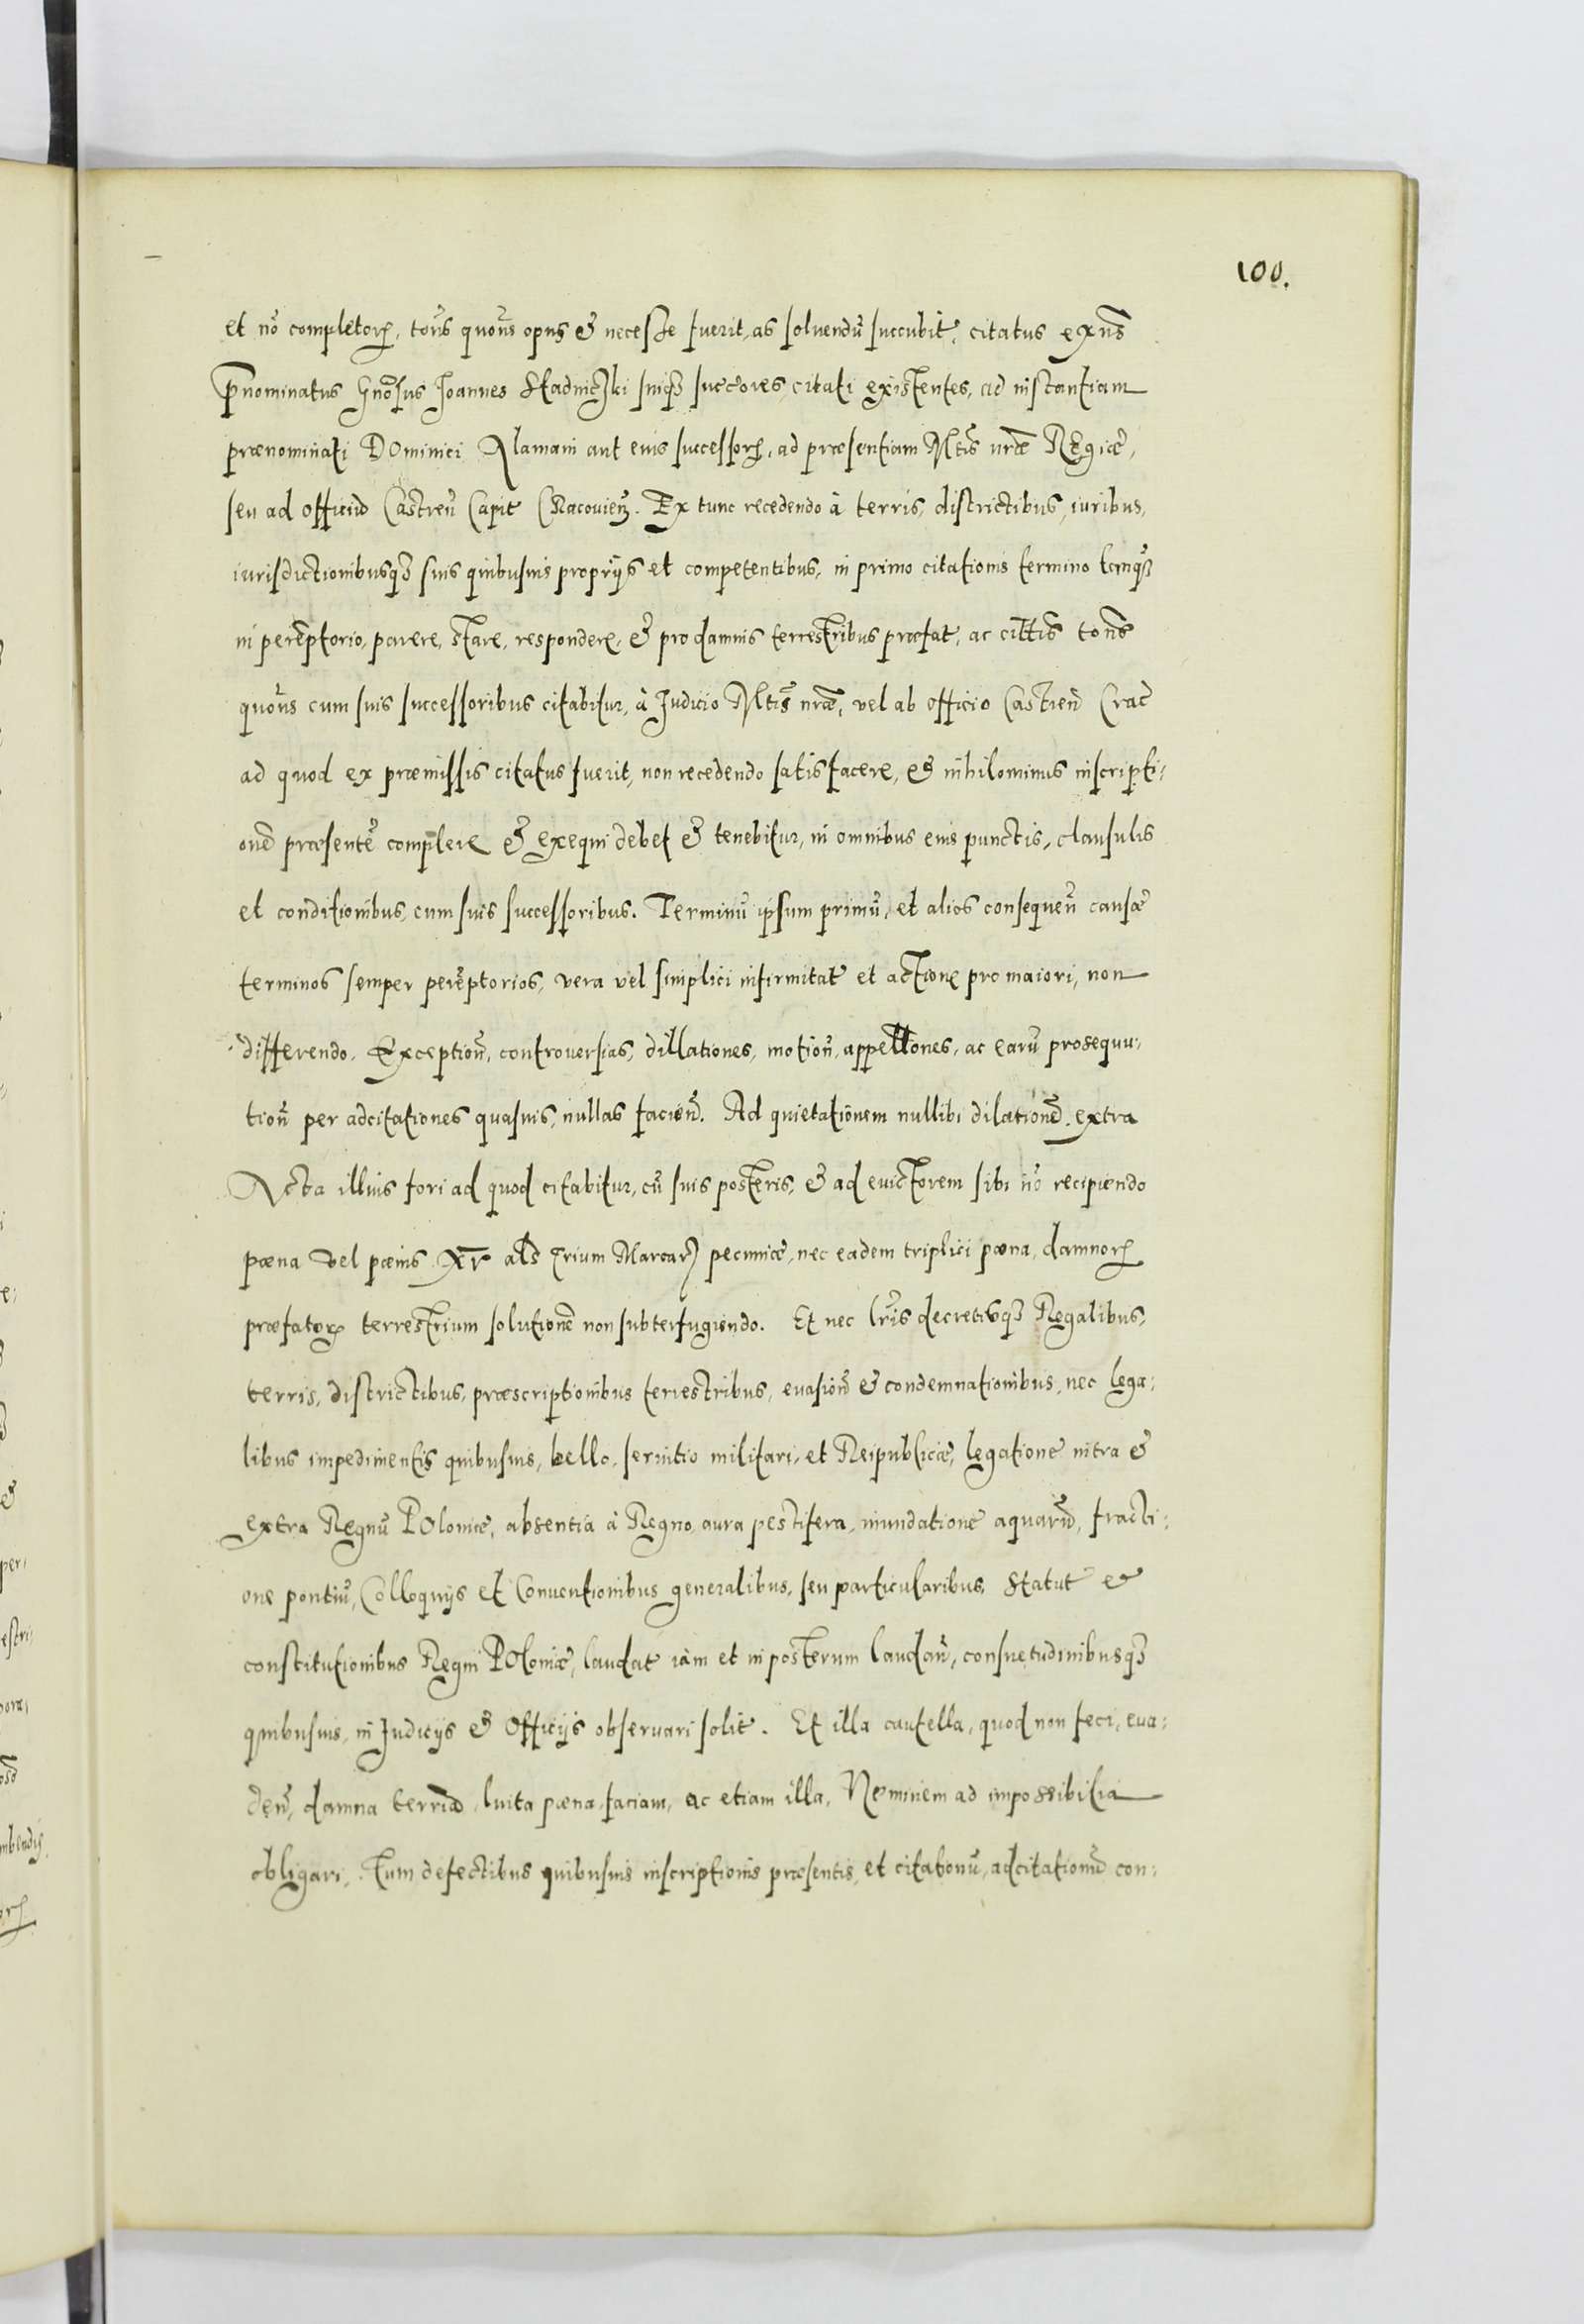 100.
et nõ completorꝝ, toñs quoñs opus & necesse fuerit, as soluendũ succubit, citatus exñs
p̃nominatus Gnõsus Joannes Stadniczki suiqꝫ succ̃ores, citati existentes, ad instantiam
prænominati DOminici Alamani aut euis successorꝝ, ad præsentiam Mtis vræ REgiæ,
seu ad officiũ Castreñ Capit CRacouieñ. Ex tunc recedendo à terris, districtibus, iuribus,
iurisdictionibusqꝫ suis quibusuis proprijs et competentibus, in primo citationis termino tanqꝫ
in perẽptorio, parere, stare, respondere, & pro damnis terrestribus præfat, ac citt̃is toñs
quoñs cum suis successoribus citabitur, à Judicio Mtis nræ, vel ab officio Castreñ Crac̃
ad quod ex præmissis citatus fuerit, non recedendo satisfacere, & nihilominus inscripti-
onẽ præsentẽ complere & exequi debet & tenebitur, in omnibus eius punctis, clausulis
et conditionibus, cum suis successoribus. Terminũ ipsum primũ, et alios consequeñ causæ
terminos semper perẽptorios, vera vel simplici infirmitat̃ et actione pro maiori, non
differendo. Exceptioñ, controuersias, dillationes, motioñ, appelltones, ac earũ prosequu-
tioñ per adcitationes quasuis, nullas facieñ. Ad quietationem nullibi dilationẽ, extra
Acta illius fori ad quod citabitur, cũ suis posteris, & ad euictorem sibi nõ recipiendo
pæna vel pænis XV als trium Marcarꝝ pecuniæ, nec eadem triplici pæna, damnorꝝ
præfatorꝝ terrestrium solutionẽ non subterfugiendo. Et nec lr̃is decretisqꝫ Regalibus,
terris, districtibus, præscriptionibus terrestribus, euasioñ & condemnationibus, nec lega-
libus impedimentis quibusuis, bello, seruitio militari, et Reipublicæ, legatione intra &
extra Regnũ POloniæ, absentia à Regno, aura pestifera, inundatione aquarũ, fracti-
one pontiũ, Colloquijs et Conuentionibus generalibus, seu particularibus, Statut̃ &
constitutionibus Regni POloniæ, laudat̃ iàm et in posterum laudañ, consuetudinibusqꝫ
quibusuis, in Judicijs & Officijs obseruari solit̃. Et illa cautella, quod non feci, eua-
deñ, damna terrið, luita pæna faciam, ac etiam illa, Neminem ad impossibilia
obligari, Tum defectibus quibusuis inscriptionis præsentis, et citationũ, adcitationũ con-